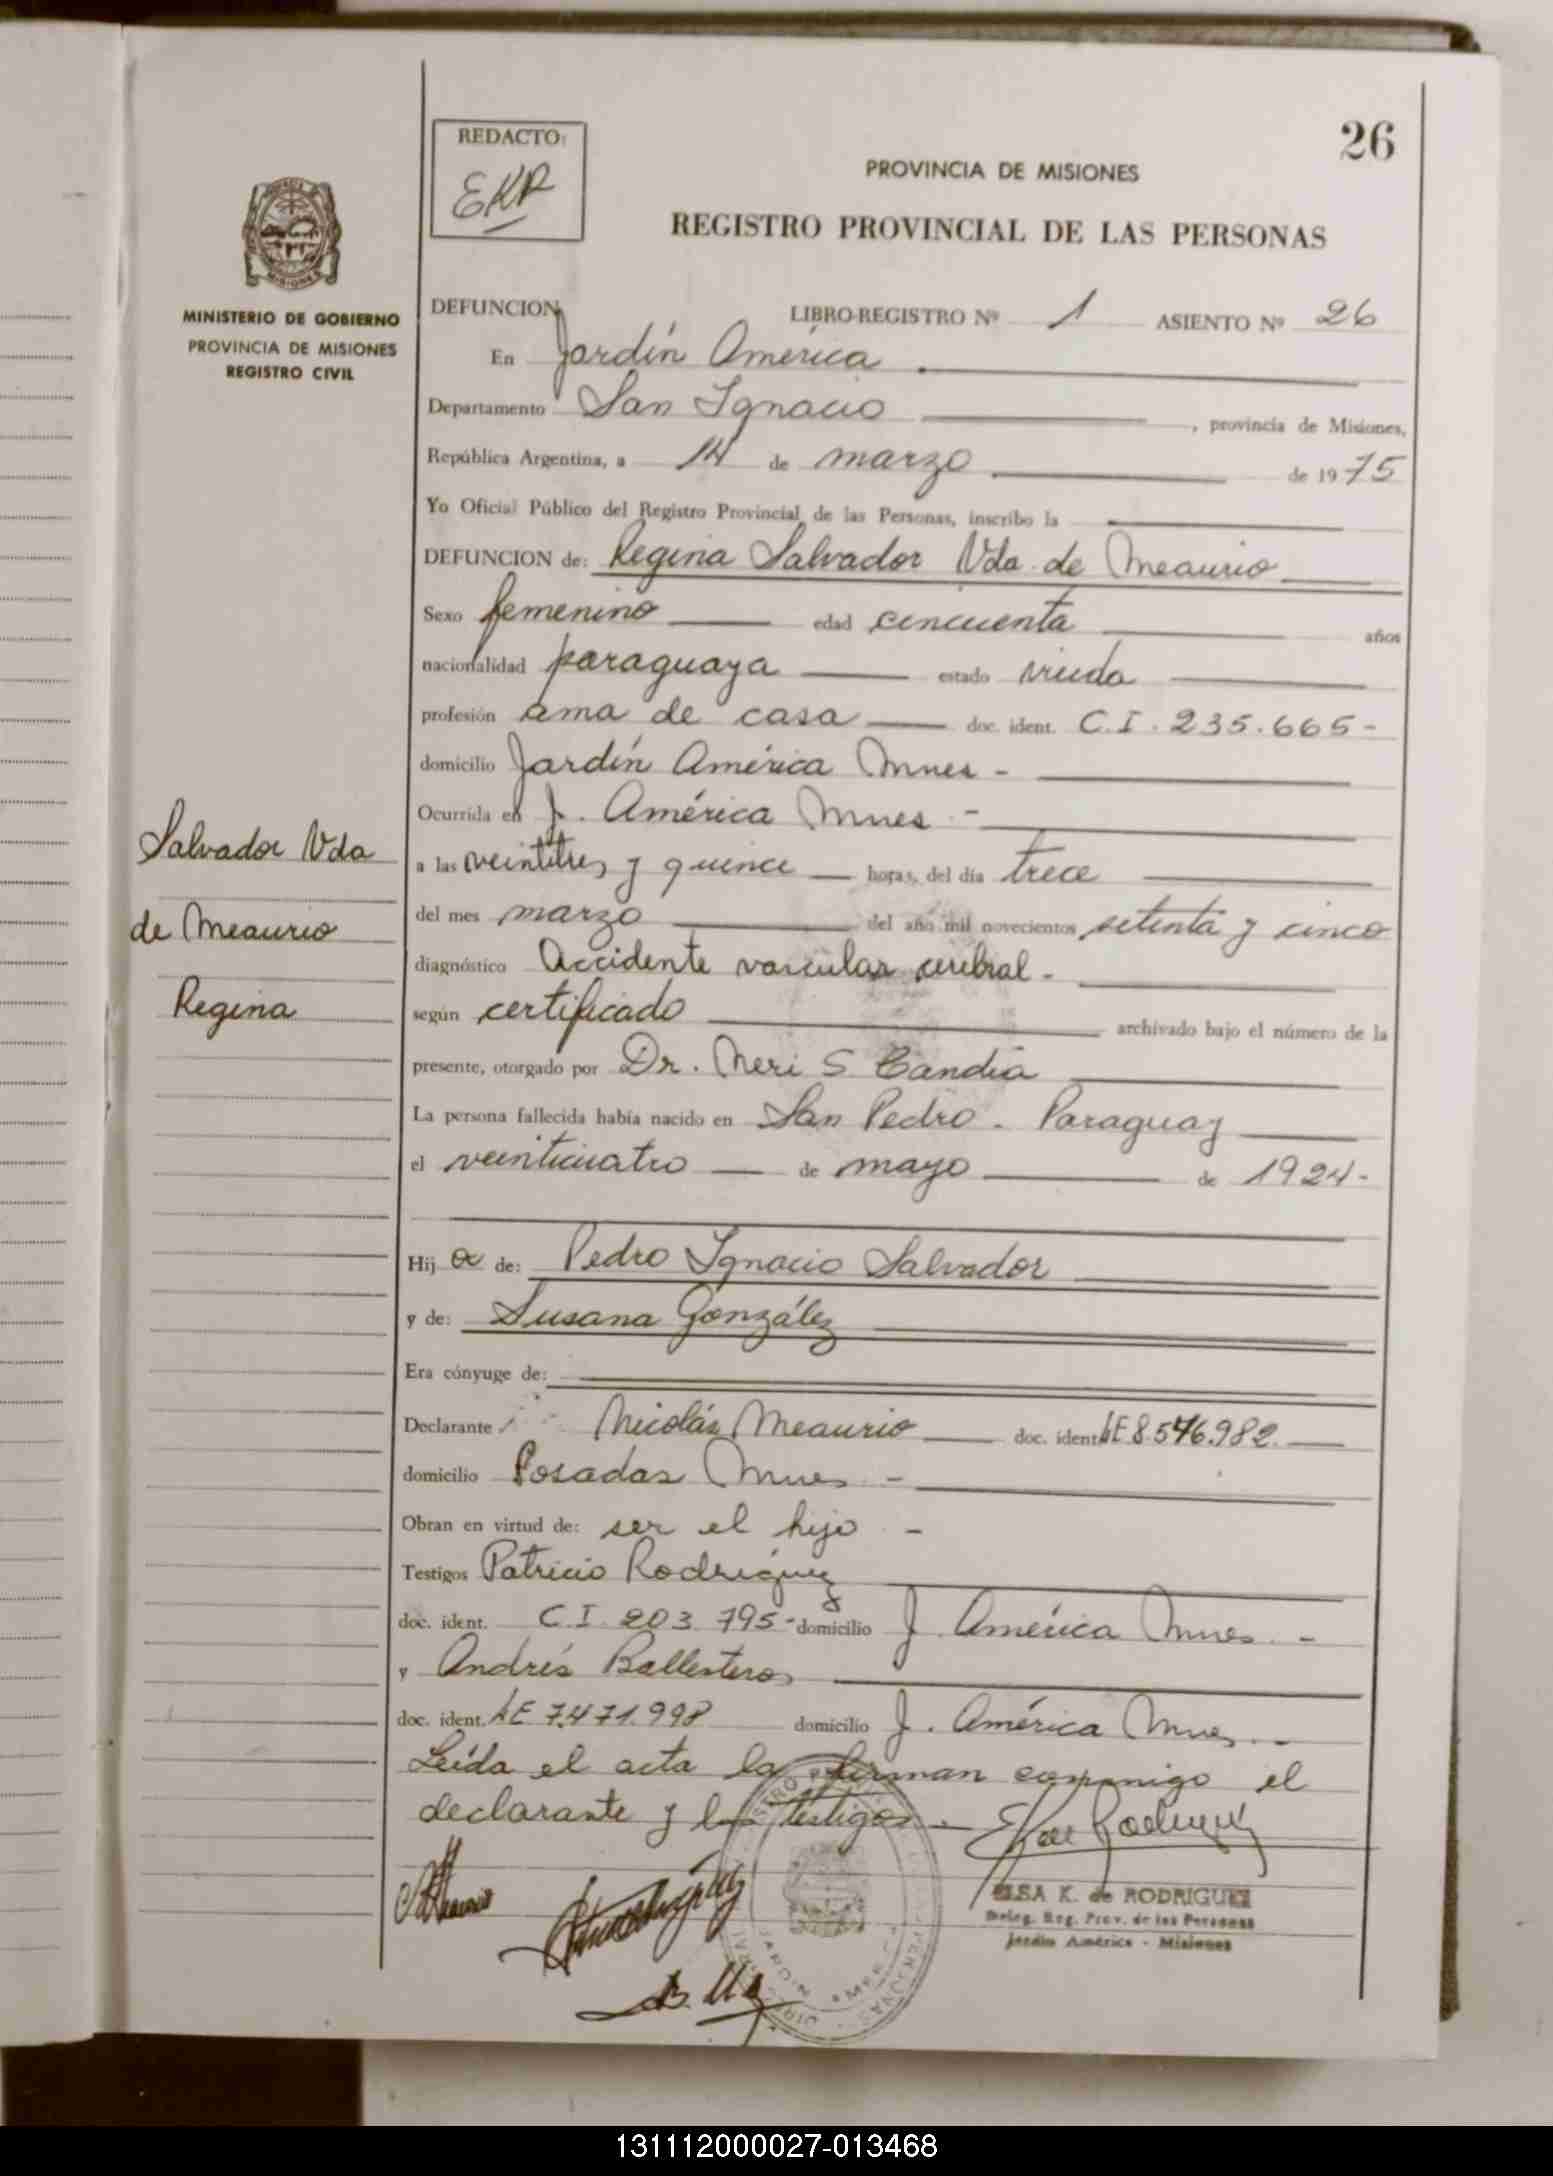 26
REDACTO:
EKR
PROVINCIA DE MISIONES
REGISTRO PROVINCIAL DE LAS PERSONAS
MINISTERIO DE GOBIERNO
PROVINCIA DE MISIONES
REGISTRO CIVIL
DEFUNCION LIBRO-REGISTRO Nº 1 ASIENTO Nº 26
En Jardín América
Departamento San Ignacio, provincia de Misiones,
República Argentina, a 14 de marzo de 1975
Yo Oficial Público del Registro Provincial de las Personas, inscribo la
DEFUNCION de: Regina Salvador Vda de Meaurio
Sexo femenino edad cincuenta años
nacionalidad paraguaya estado viuda
profesión ama de casa doc. ident. C.I. 235.665-
domicilio Jardín América Mnes -
Ocurrida en J. América Mnes -
a las veintitres y quince horas, del día trece
del mes marzo del año mil novecientos setenta y cinco
diagnóstico Accidente vascular cerebral -
según certificado archivado bajo el número de la
presente, otorgado por Dr. Neri S. Candia
La persona fallecida había nacido en San Pedro - Paraguay
el veinticuatro de mayo de 1924-
Hija de: Pedro Ignacio Salvador
y de: Susana González
Era cónyuge de:
Declarante Nicolás Meaurio doc. ident. LE 8.546.982
domicilio Posadas Mnes -
Obran en virtud de: ser el hijo -
Testigos Patricio Rodríguez
doc. ident. C.I. 203.795- domicilio J. América Mnes -
y Andrés Ballesteros
doc. ident. LE 7.471.998 domicilio J. América Mnes -
Leída el acta la firman conmigo el
declarante y los testigos -
Salvador Vda
de Meaurio
Regina
ELSA K. de RODRIGUEZ
Deleg. Reg. Prov. de las Personas
Jardín América - Misiones
131112000027-013468